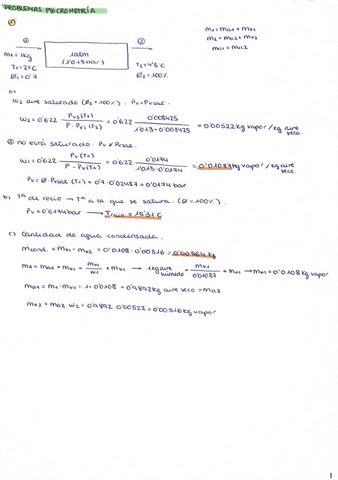 PROBLEMAS PSICROMETRÍA
①
m1 = ma1 + mv1
m2 = ma2 + mv2
ma1 = ma2
① 1atm ②
m1 = 1kg (1'013 bar)
T1 = 21ºC T2 = 4'5ºC
Ø1 = 0'7 Ø2 = 100%
a)
W2 aire saturado (Ø2 = 100%). Pv = Pvsat.
W2 = 0'622 Pv2(T2) / P - Pv2(T2) = 0'622 0'008425 / 1'013 - 0'008425 = 0'00522 kg vapor/kg aire seco
① no está saturado. Pv ≠ Pvsat.
W1 = 0'622 Pv(T1) / P - Pv(T1) = 0'622 0'0174 / 1'013 - 0'0174 = 0'01087 kg vapor/kg aire seco.
Pv = Ø · Pvsat (T1) = 0'7 · 0'02487 = 0'0174 bar
b) Tª de rocío → Tª a la que se satura. (Ø = 100%).
Pv = 0'0174 bar → Trocío = 15'31ºC
c) Cantidad de agua condensada.
mcond. = mv1 - mv2 = 0'0108 - 0'00516 = 0'00564 kg
m1 = ma1 + mv1 = mv1 / W1 + mv1 → 1kg aire húmedo = mv1 / 0'01087 + mv1 → mv1 = 0'0108 kg vapor
ma1 = m1 - mv1 = 1 - 0'0108 = 0'9892 kg aire seco = ma2
mv2 = ma2 · W2 = 0'9892 · 0'00522 = 0'00516 kg vapor
1